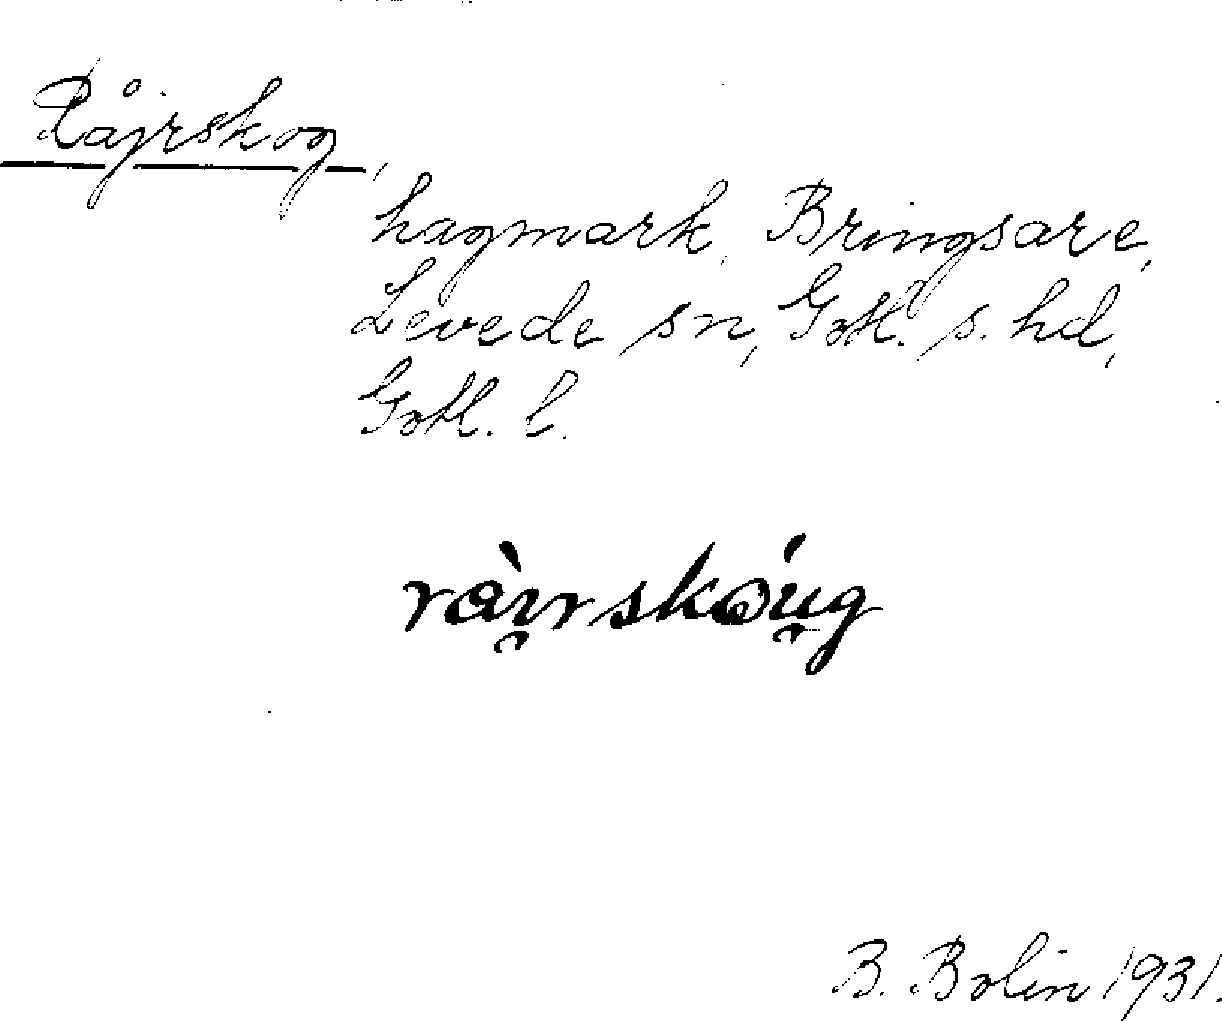 Råjrskog,
hagmark, Bringsare,
Levede sn, Gotl. s. hd,
Gotl. l.
B. Bolin 1931.